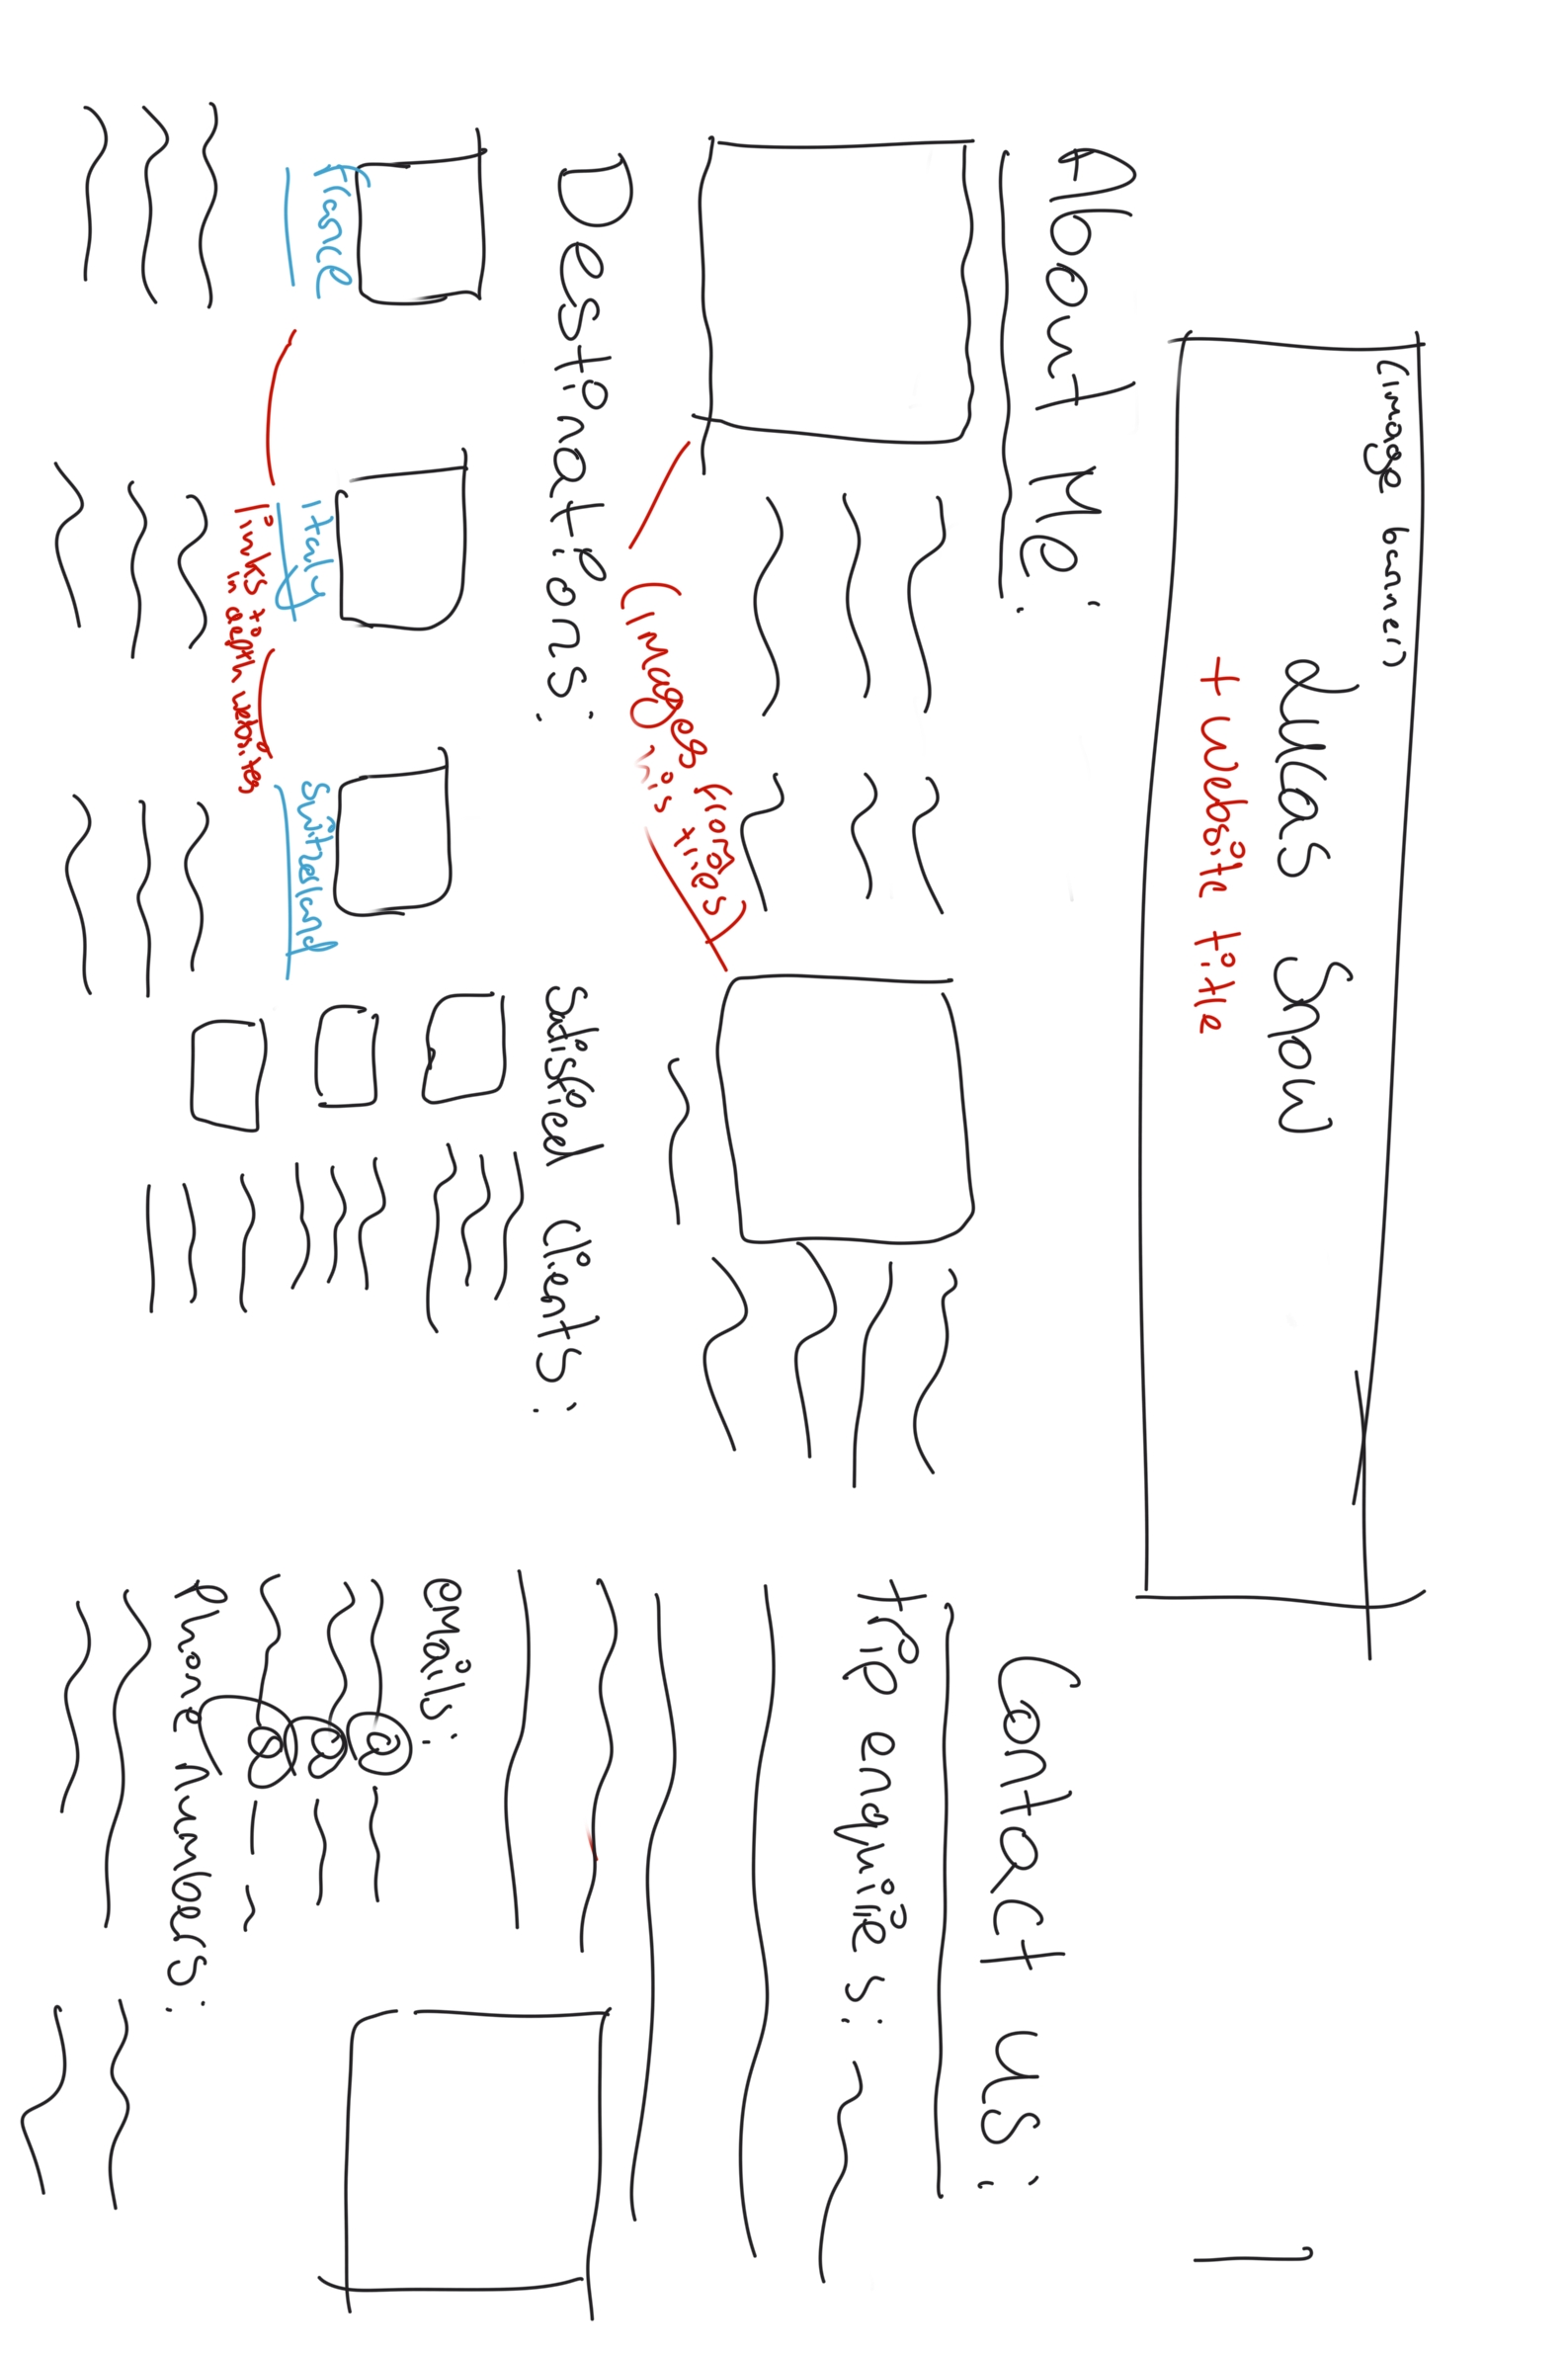 (image banner)
Julias Snow
+ website title
About Me:
(images from
his trips)
Destinations:
France
Italy
Switzerland
links to
in depth websites
Satisfied clients:
Contact us:
trip enquiries:
emails:
@
@
@
Phone numbers: